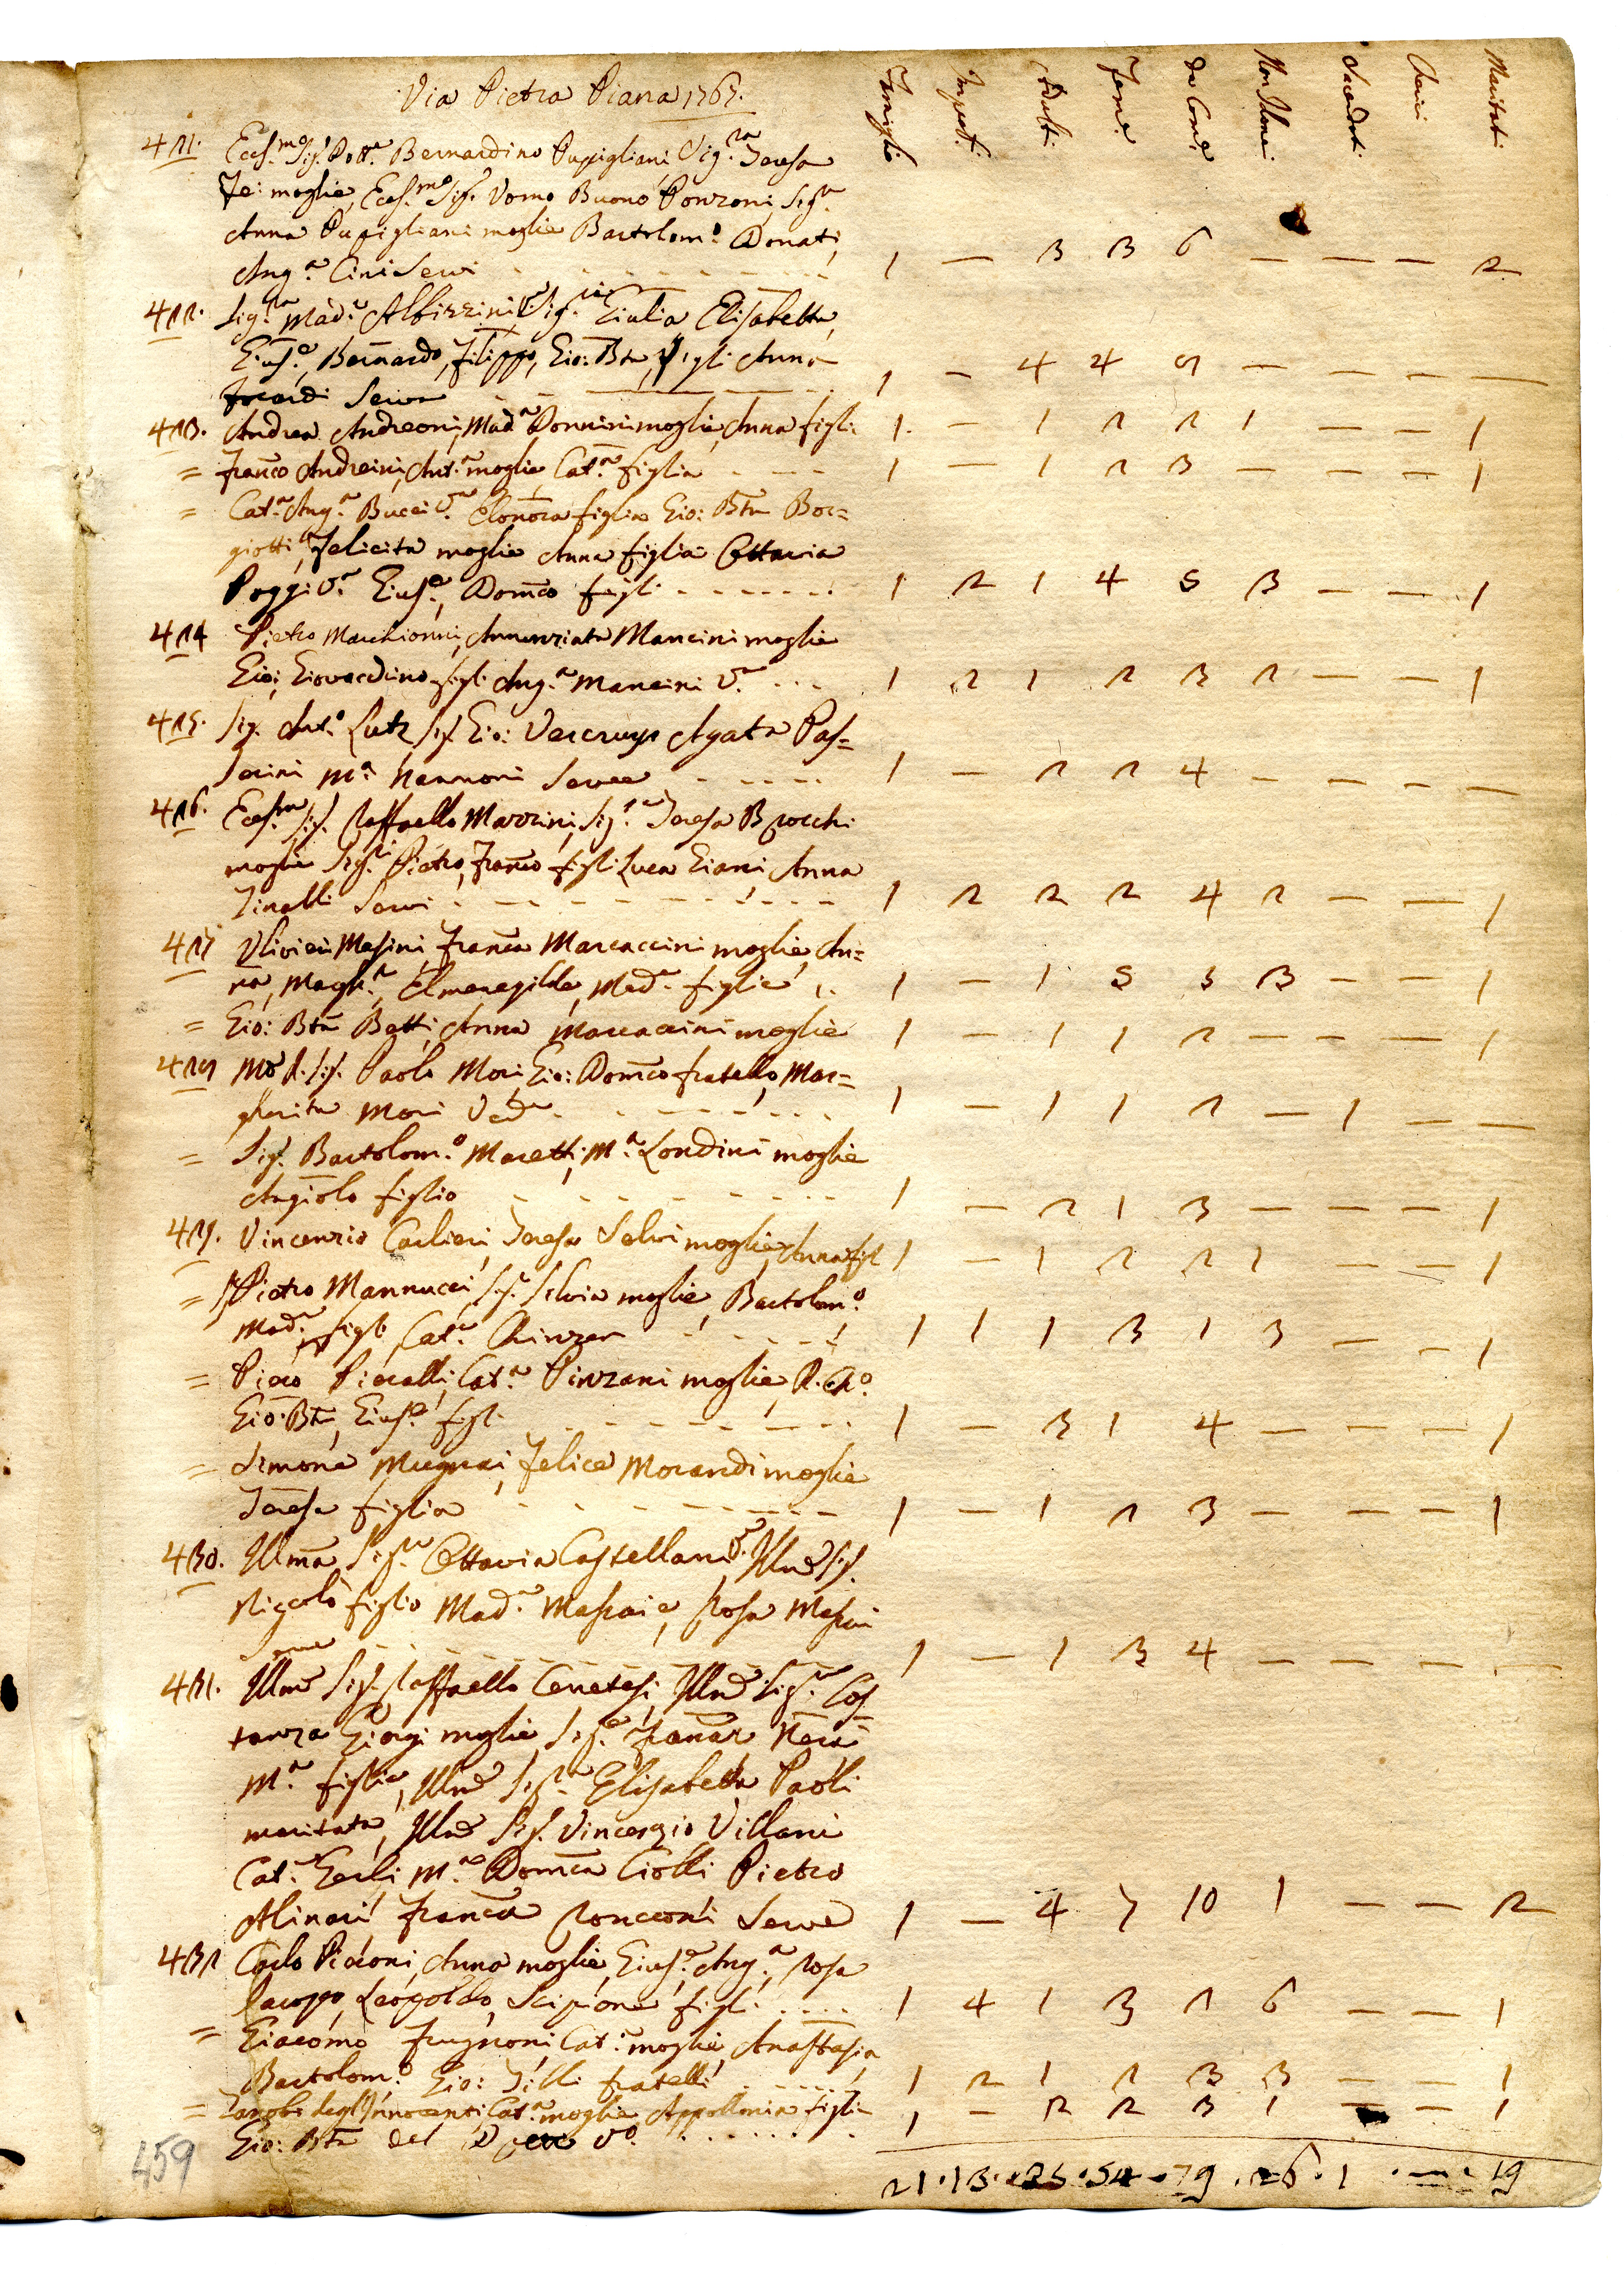 Via Pietra Piana 1767.
Famiglie Impub.i Adulti Fem.e Da Com.e Non Idonei Sacerdoti Cherici Maritati
421. Ecc.mo Sig.r Dott.e Bernardino Pupigliani, Sig.ra Teresa
moglie, Ecc.mo Sig.r Uomo Buono Ponzoni Sig.ra
Anna Pupigliani moglie Bartolom.o Donati,
Ang.a Cini Servi 1 — 3 3 6 — — — 2
422. Sig.ra Mad.a Albizzini V.a Sig.re Giulia, Elisabetta,
Gius.e, Bernardo, Filippo, Gio: Bta figli Anna
Focardi Serva 1 — 4 4 8 — — — —
423. Andrea Andreoni, Mad.a Donnini moglie, Anna figli: 1. — 1 2 2 1 — — 1
= Franco Andreini, Ant.a moglie, Cat.a figlia 1 — 1 2 3 — — — 1
= Cat.a Ang.a Bucci V.a Elonora figlia Gio: Bta Bor=
giotti, Felicita moglie Anna figlia Ottavia
Poggi V.a Gius.e, Domco figli 1 2 1 4 5 3 — — 1
424 Pietro Marchionni, Annunziata Mancini moglie
Gio:, Giovacchino figli Ang.a Mancini V.a 1 2 1 2 3 2 — — 1
425. Sig. Ant.o Lutz Sig. Gio: Vercruys Agata Pas=
serini M.a Nannoni Serve 1 — 2 2 4 — — — —
426. Ecc.mo Sig. Raffaello Marzini, Sig.ra Teresa Brocchi
moglie Sig.ri Pietro, Franco figli Luca Giani, Anna
Tinelli Servi 1 2 2 2 4 2 — — 1
427 Ulivieri Masini, Franca Marcaccini moglie, An=
na, Margh.a, Elmenegilda, Mad.a figlie 1 — 1 5 3 3 — — 1
= Gio: Bta Betti, Anna Marcaccini moglie 1 — 1 1 2 — — — 1
428 Mo R. Sig. Paolo Mori, Gio: Domco fratello, Mar=
gherita Mori Ved.a 1 — 1 1 2 — 1 — —
= Sig. Bartolom.o Moretti, M.a Londini moglie
Angiolo figlio 1 — 2 1 3 — — — 1
429. Vincenzio Carlieri, Teresa Selvi moglie, Anna figl 1 — 1 2 2 1 — — 1
= Pietro Mannucci, Silvia moglie, Bartolom.o
Mad.a figli, Cat.a 1 1 1 3 1 3 — — 1
= Piero Pieralli, Cat.a Pinzani moglie,
Gio: Bta, Gius.e figli 1 — 3 1 4 — — — 1
= Simone Mugnai, Felice Morandi moglie
Teresa figlia 1 — 1 2 3 — — — 1
430. Illma Sig.ra Ottavia Castellani V.a Illmo Sig.
Niccolò figlio Mad.a Masraie, Rosa Masrai
Serve 1 — 1 3 4 — — — —
431. Illmo Sig. Raffaello Cenetesi, Illma Sig.ra Cos
tanza Giorgi moglie, Sig.e Franca Nera
M.a figlie, Illma Sig.ra Elisabetta Paoli
maritata, Illmo Sig. Vincenzio Villani
Cat.a Gerli, M.a Domca Ciolli Pietro
Alinari Franca Ronconi Serve 1 — 4 7 10 1 — — 2
432 Carlo Picconi, Anna moglie, Gius.e, Ang.a, Rosa
Iacopo, Leopoldo, Scipione figli 1 4 1 3 2 6 — — 1
= Giacomo Frugnoni, Cat.a moglie, Anastasia
Bartolom.o Gio: Tilli fratelli 1 2 1 2 3 3 — — 1
= Zanobi degl'Innocenti, Cat.a moglie, Appollonia figlia
Gio: Bta del V.o 1 — 2 2 3 1 — — 1
21 · 13 · 35 · 54 · 79 · 26 · 1 · — · 19
459